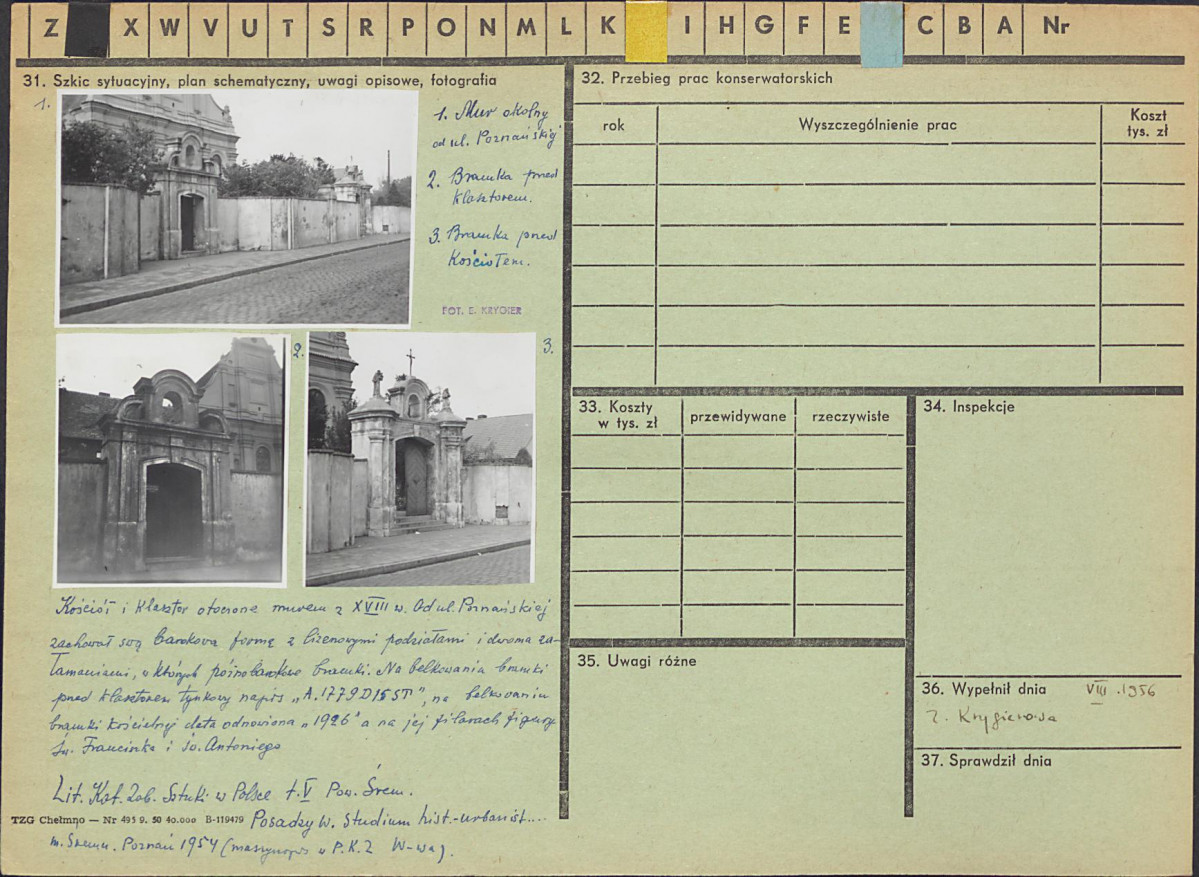 Z X W V U T S R P O N M L K I H G F E C B A Nr
31. Szkic sytuacyjny, plan schematyczny, uwagi opisowe, fotografia
1.
1. Mur okolny
od ul. Poznańskiej
2. Bramka przed
klasztorem.
3. Bramka przed
Kościołem.
FOT. E. KRYGIER
2.
3.
Kościół i klasztor otoczone murem z XVIII w. Od ul. Poznańskiej
zachował swą barokową formę z lizenowymi podziałami i dwoma za-
łamaniami, w których późnobarokowe bramki. Na belkowaniu bramki
przed klasztorem tynkowy napis „A. 1779 D15ST", na belkowaniu
bramki kościelnej data odnowiona „1926" a na jej filarach figury
św. Franciszka i św. Antoniego
Lit. Kat. Zab. Sztuki w Polsce t. V Pow. Śrem.
TZG Chełmno — Nr 495 9. 50 40.000 B-119479
Posadzy W. Studium hist.-urbanist....
m. Śremu. Poznań 1954 (maszynopis w P.K.Z W-wa).
32. Przebieg prac konserwatorskich
rok
Wyszczególnienie prac
Koszt
tys. zł
33. Koszty
w tys. zł
przewidywane
rzeczywiste
34. Inspekcje
35. Uwagi różne
36. Wypełnił dnia VIII.1956
Krygierowa
37. Sprawdził dnia